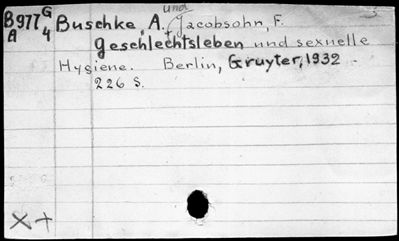 B977 G Buschke, A. und Jacobsohn, F.
A 4 Geschlechtsleben und sexuelle
Hygiene. Berlin, Gruyter, 1932.
226 S.